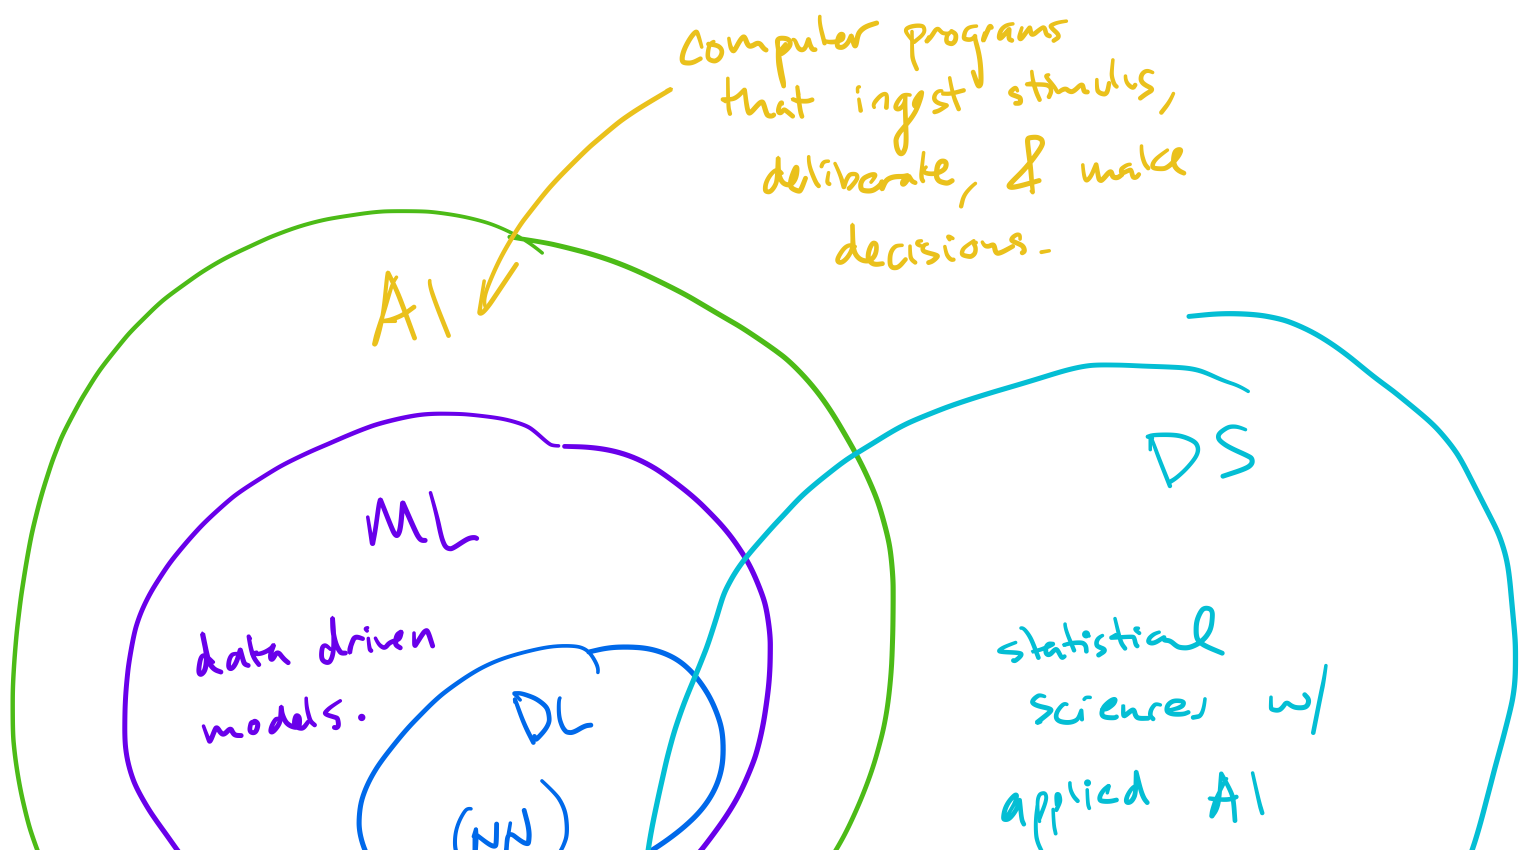 computer programs
that ingest stimulus,
deliberate, & make
decisions.
AI
DS
ML
data driven
models.
statistical
sciences w/
DL
applied AI
(NN)